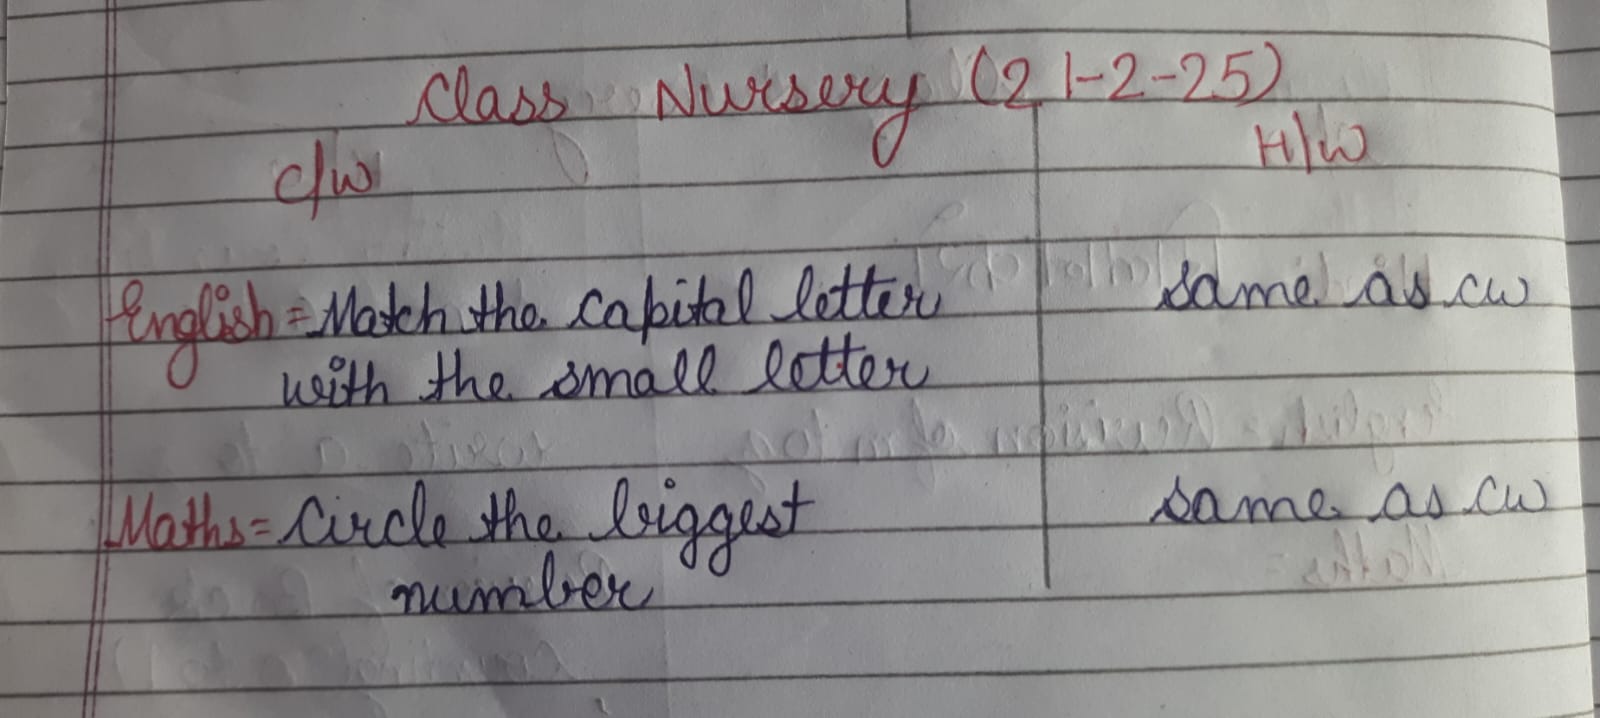 Class Nursery (21-2-25)
C/W H/W
English = Match the capital letter same as cw
with the small letter
Maths = Circle the biggest same as cw
number